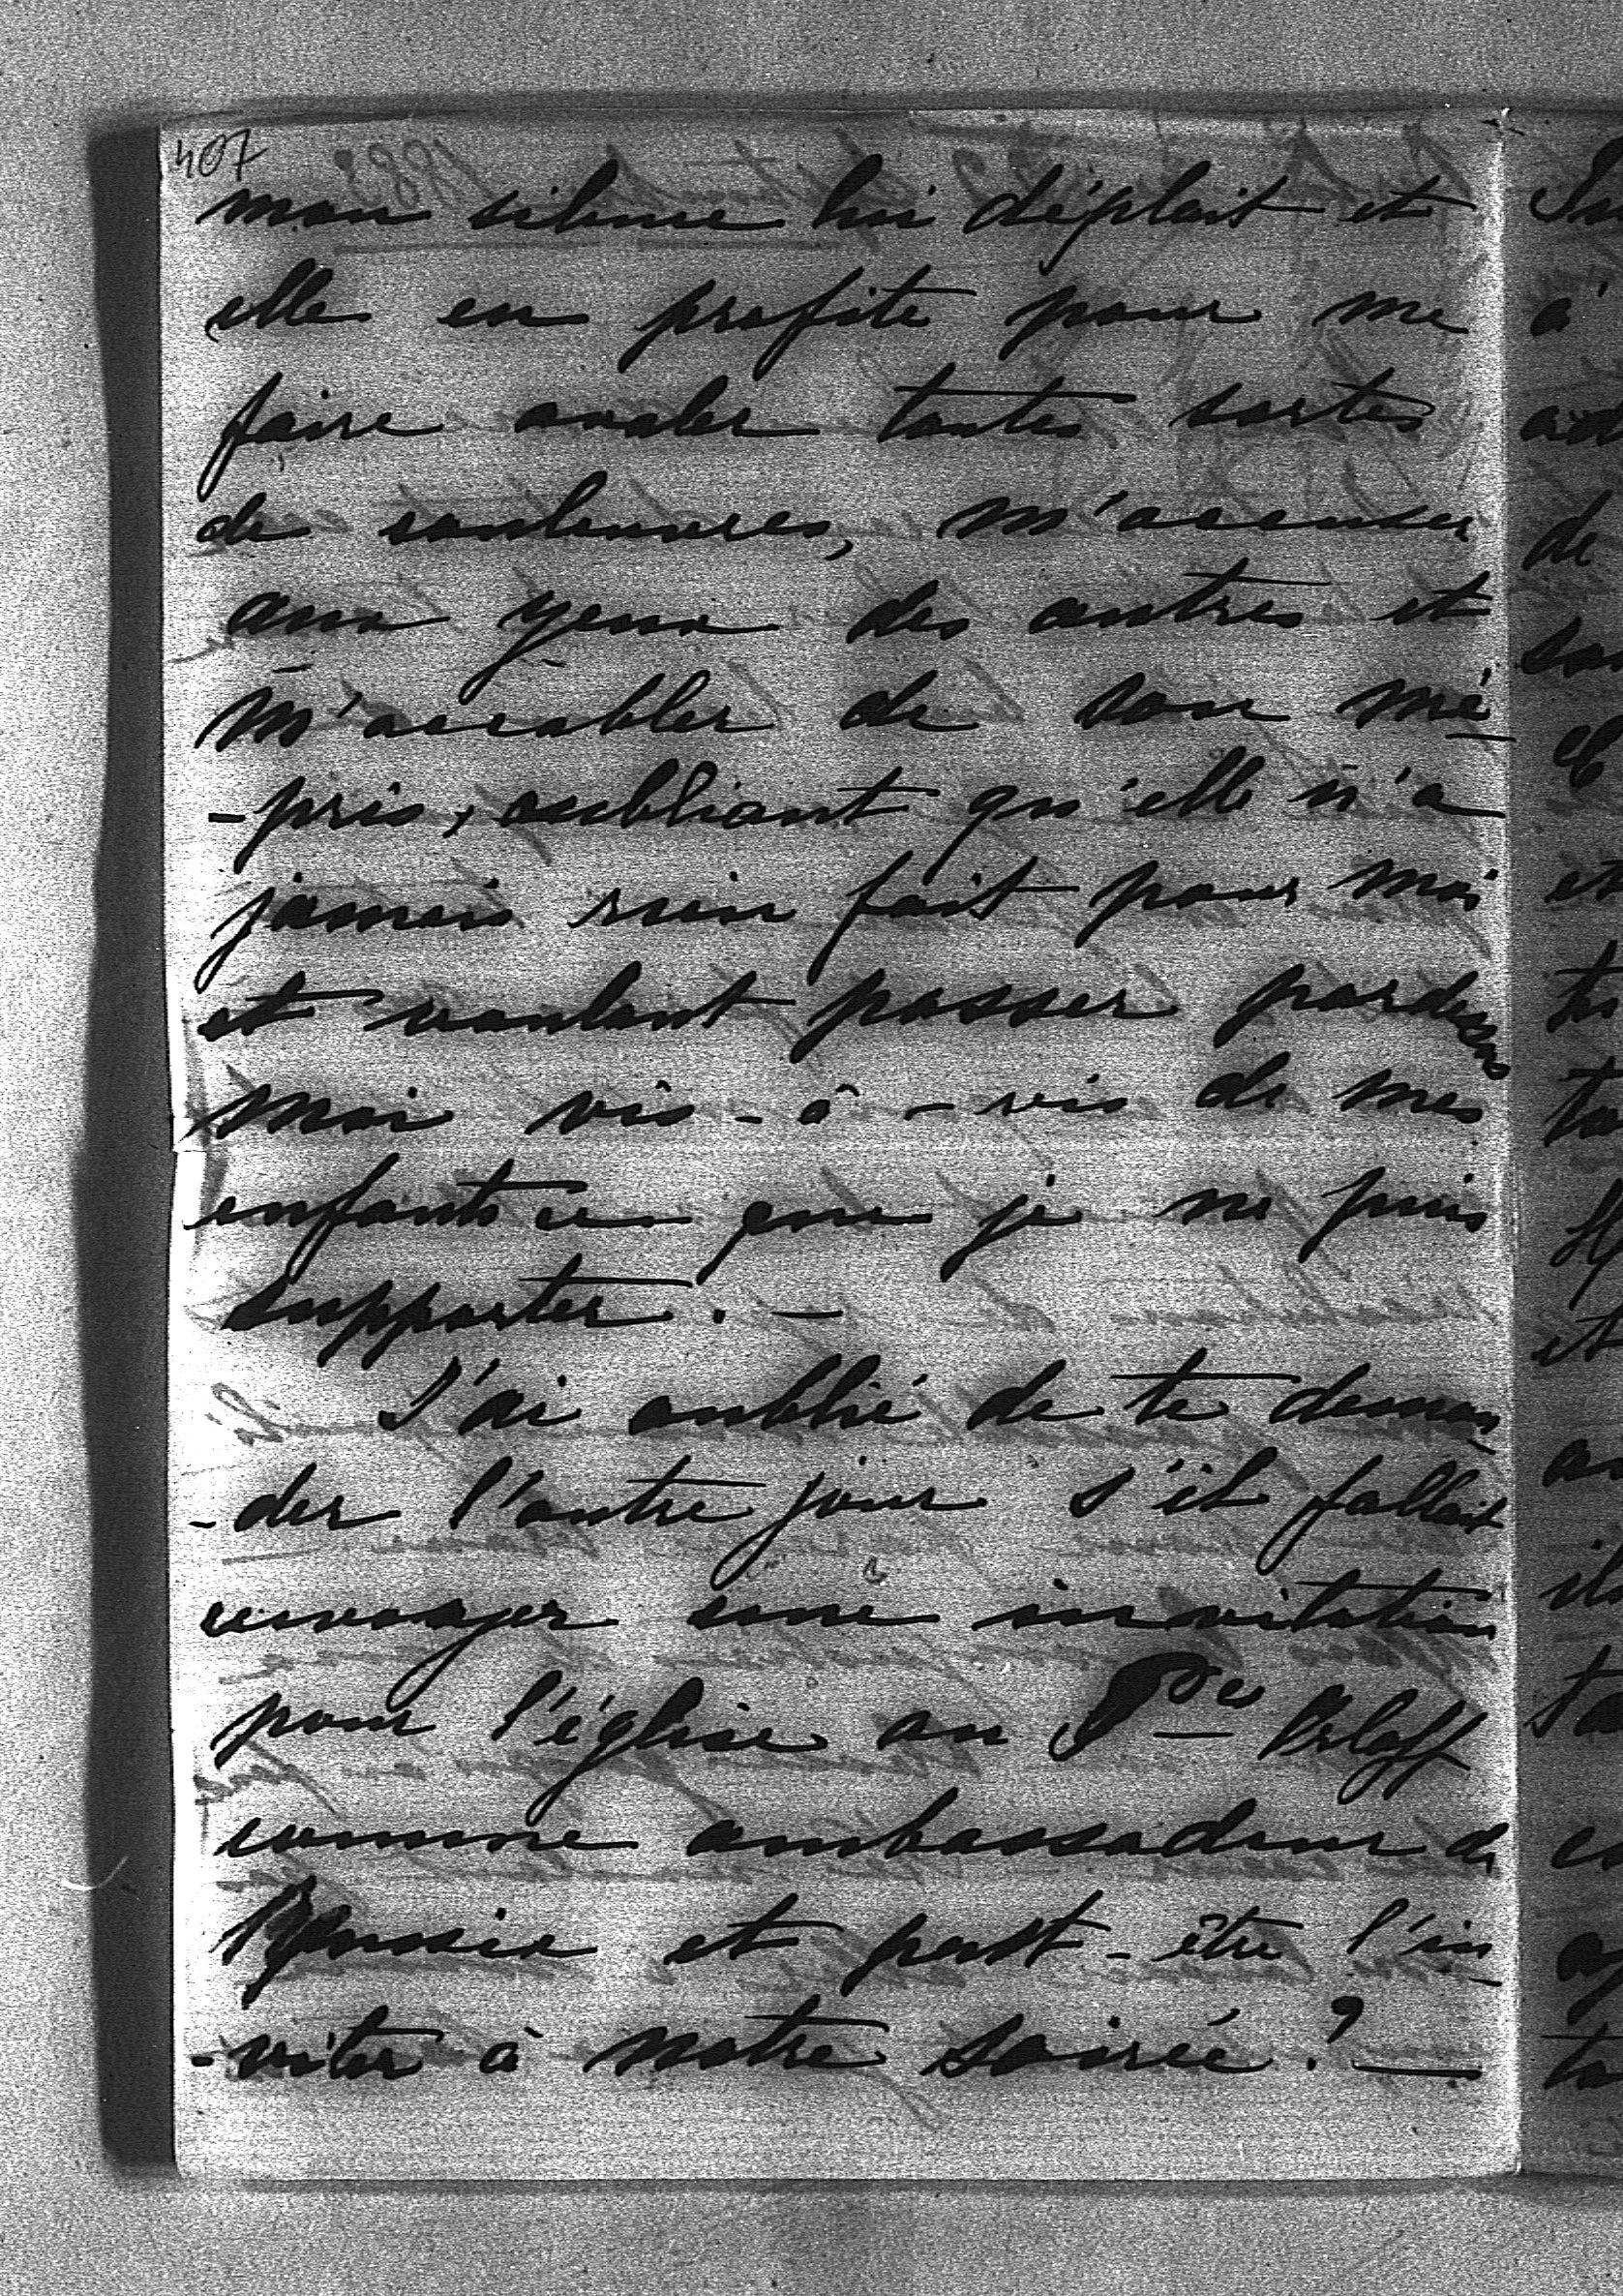 407
mon silence lui déplait et
elle en profite pour me
faire avaler toutes sortes
de couleuvres, m'accuser
aux yeux des autres et
m'accabler de son mé
-pris, oubliant qu'elle n'a
jamais rien fait pour moi
et voulant passer pardessus
moi vis-à-vis de mes
enfants ce que je ne puis
supporter. —
J'ai oublié de te deman
-der l'autre jour s'il fallait
envoyer une invitation
pour l'église au Pce Orloff
comme ambassadeur de
Russie et peut-être l'in
-viter à notre soirée? —